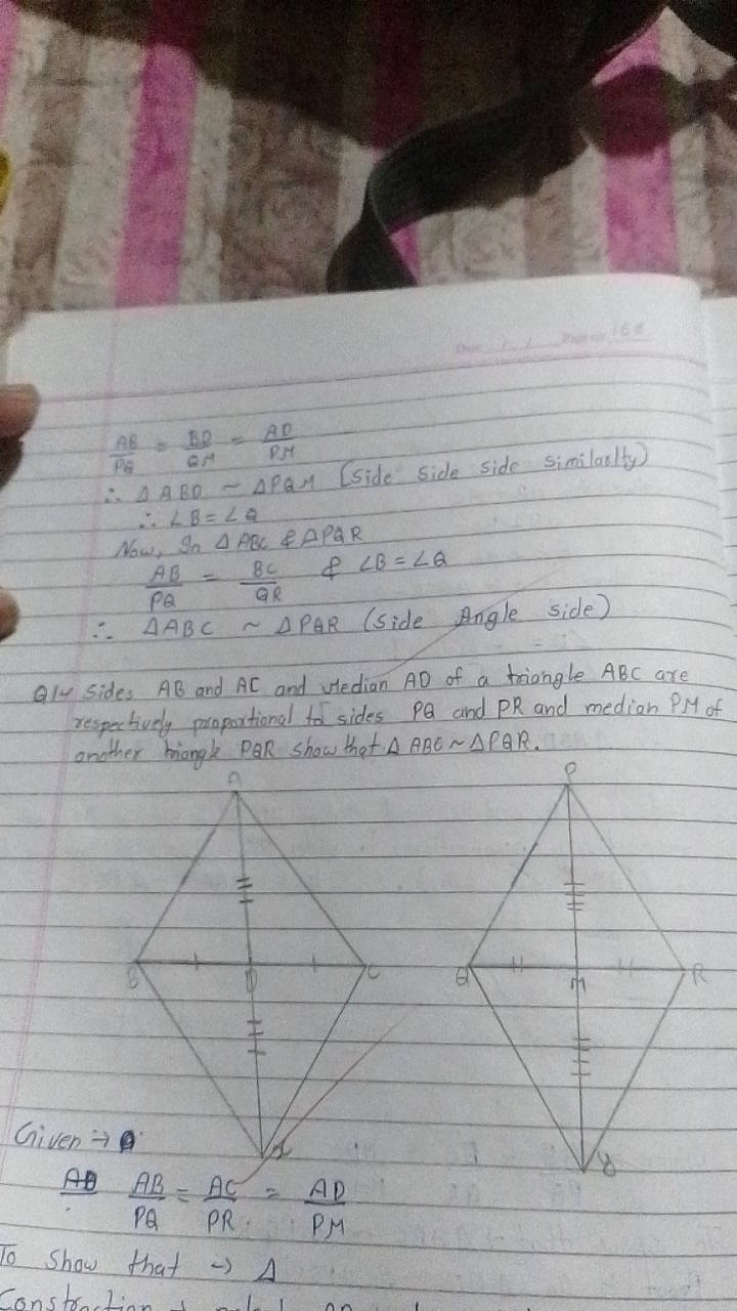 AB/PQ = BD/QM = AD/PM
∴ Δ ABD ~ ΔPQM (Side side side similarlty)
∴ ∠B = ∠Q
Now, In Δ ABC & ΔPQR
AB/PQ = BC/QR & ∠B = ∠Q
∴ ΔABC ~ ΔPQR (Side Angle side)
Q14 Sides AB and AC and Median AD of a triangle ABC are
respectively proportional to sides PQ and PR and median PM of
another triangle PQR show that Δ ABC ~ ΔPQR.
A P
B D C Q M R
Given →
AB/PQ = AC/PR = AD/PM
To Show that → Δ